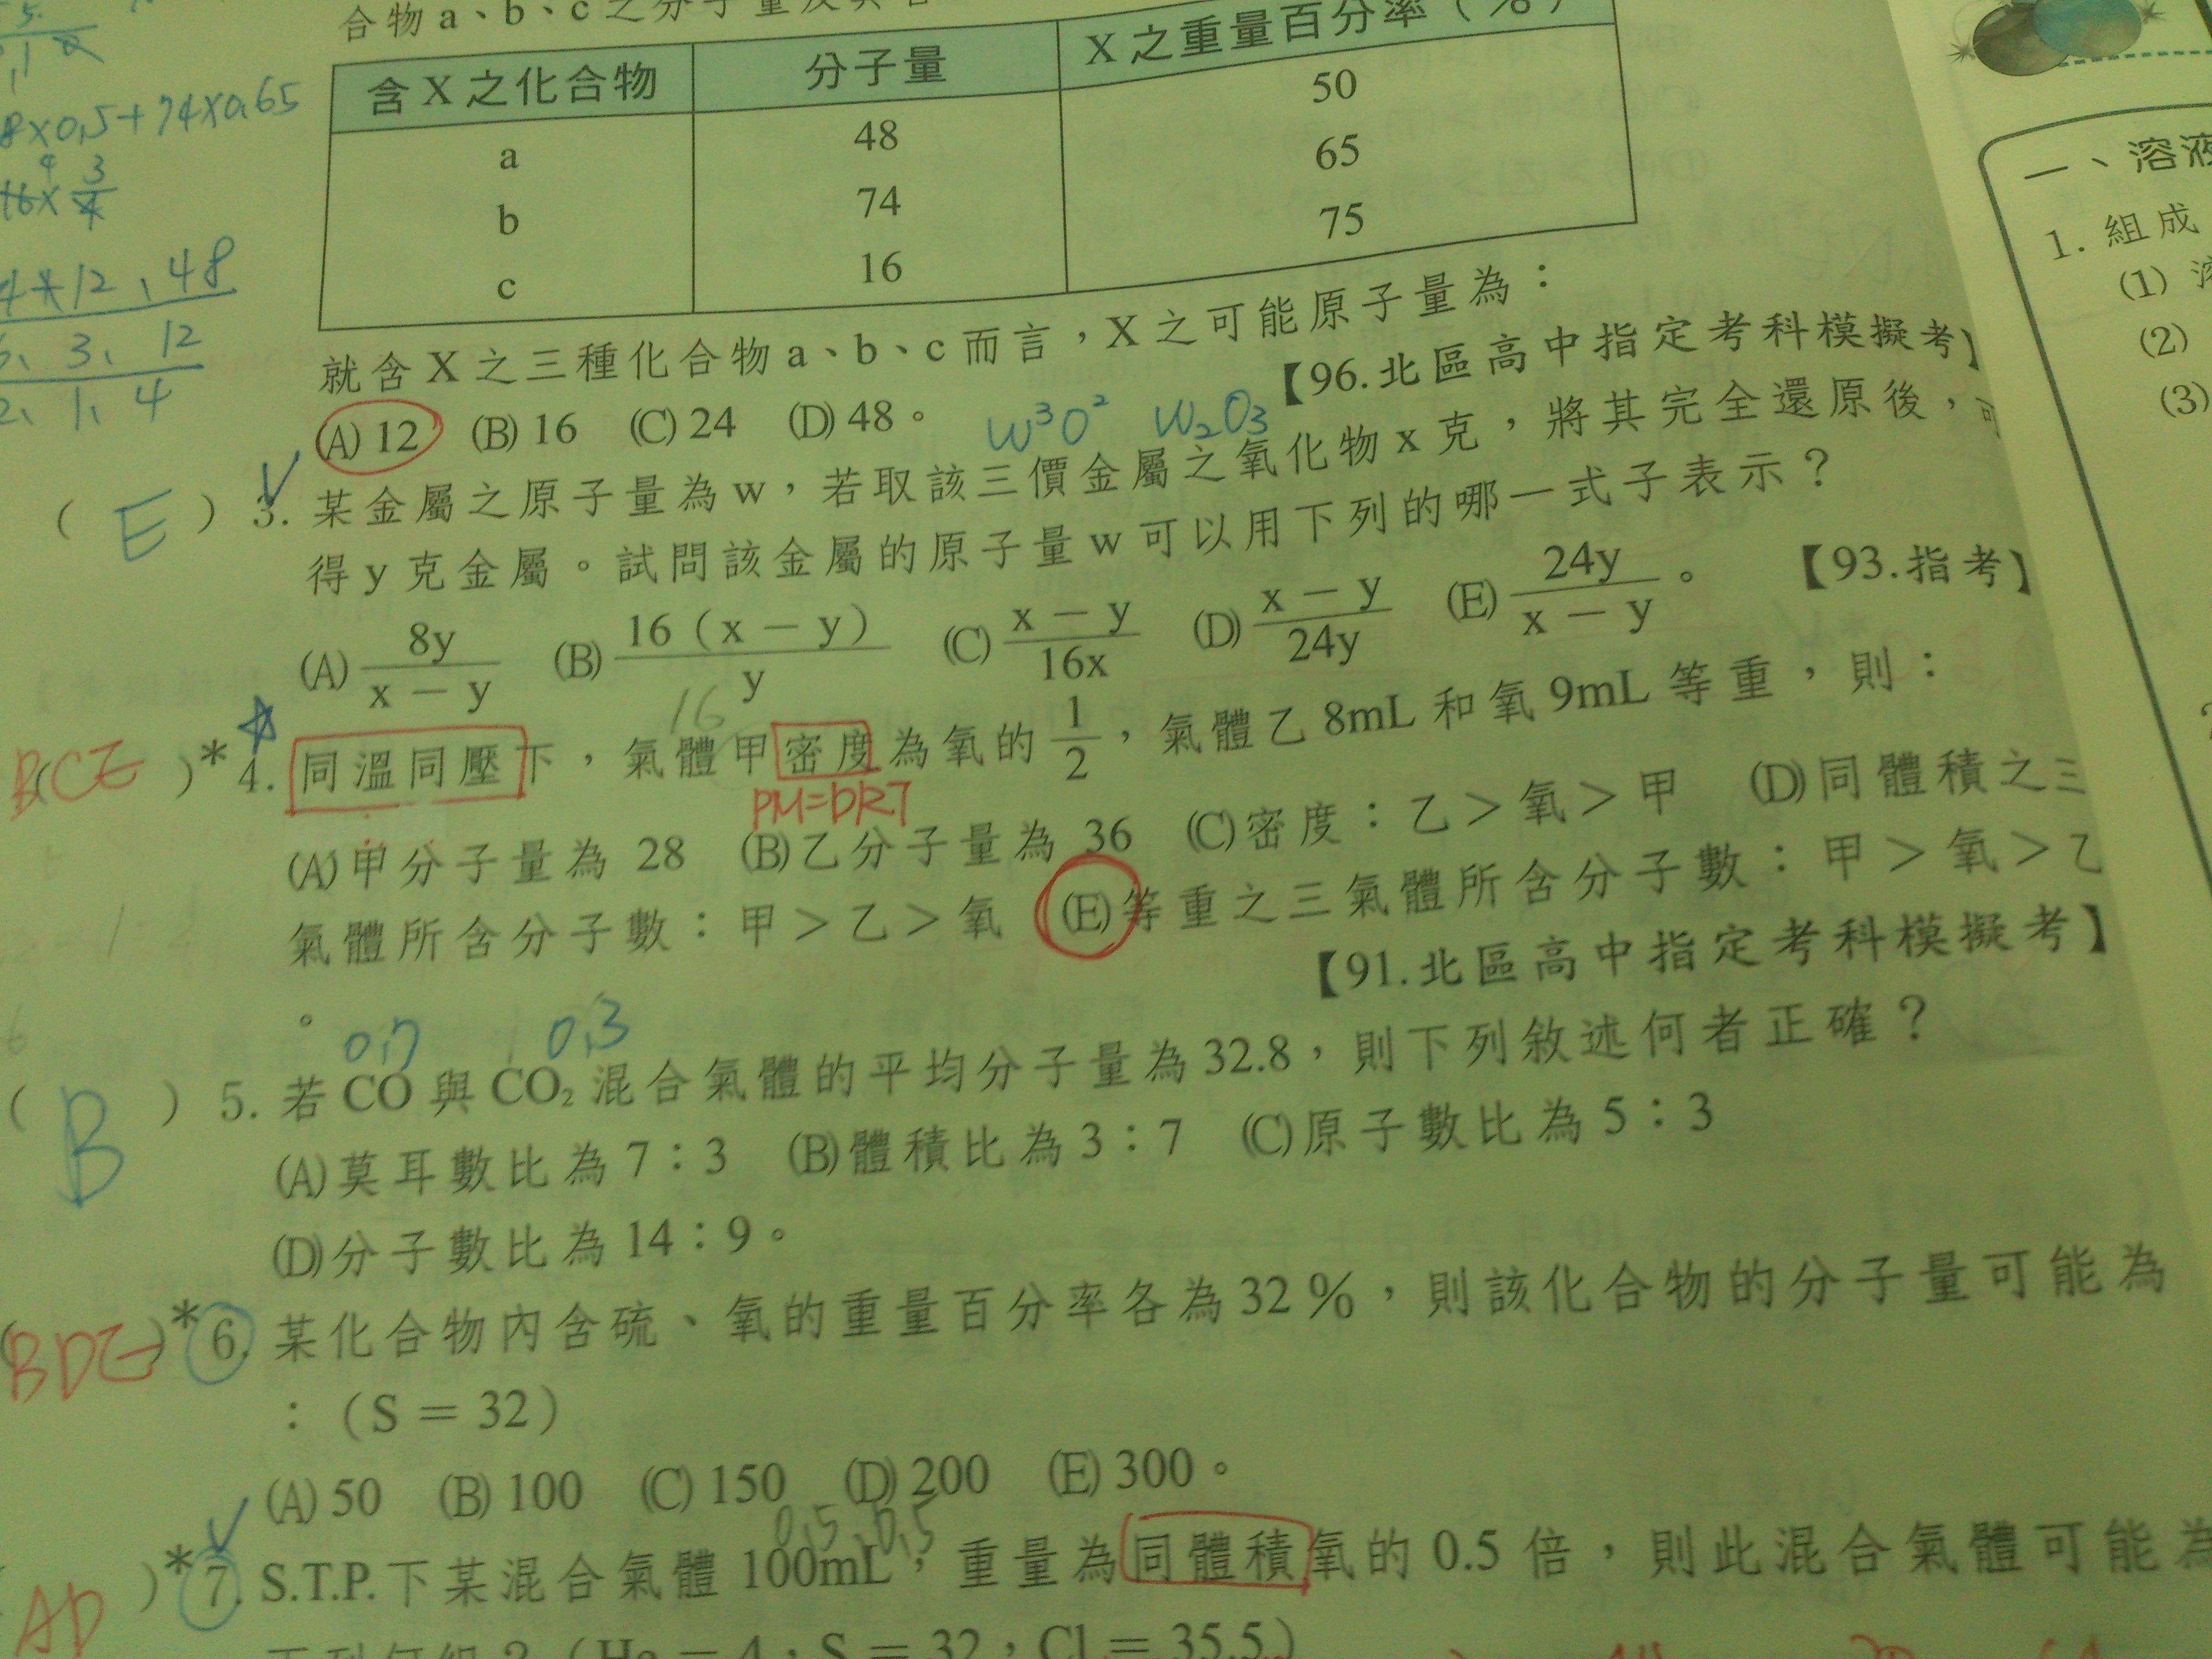 合物a、b、c之分子量及其
含X之化合物 分子量 X之重量百分率(%)
a 48 50
b 74 65
c 16 75
就含X之三種化合物a、b、c而言，X之可能原子量為：
(A)12 (B)16 (C)24 (D)48。
【96.北區高中指定考科模擬考】
W³O² W₂O₃
(E) 3. 某金屬之原子量為w，若取該三價金屬之氧化物x克，將其完全還原後，可
得y克金屬。試問該金屬的原子量w可以用下列的哪一式子表示？
【93.指考】
(A) 8y/(x－y) (B) 16(x－y)/y (C) (x－y)/16x (D) (x－y)/24y (E) 24y/(x－y)。
16
BCE )* 4. 同溫同壓下，氣體甲密度為氧的1/2，氣體乙8mL和氧9mL等重，則：
PM=DRT
(A)甲分子量為 28 (B)乙分子量為 36 (C)密度：乙＞氧＞甲 (D)同體積之三
氣體所含分子數：甲＞乙＞氧 (E)等重之三氣體所含分子數：甲＞氧＞乙
【91.北區高中指定考科模擬考】
。
0.7 0.3
( B ) 5. 若CO與CO₂混合氣體的平均分子量為32.8，則下列敘述何者正確？
(A)莫耳數比為7：3 (B)體積比為3：7 (C)原子數比為5：3
(D)分子數比為14：9。
(BDE)* 6. 某化合物內含硫、氧的重量百分率各為32%，則該化合物的分子量可能為
：(S＝32)
(A)50 (B)100 (C)150 (D)200 (E)300。
0.5 0.5
AD )* 7. S.T.P.下某混合氣體100mL，重量為同體積氧的0.5倍，則此混合氣體可能為
下列何組？(He＝4，S＝32，Cl＝35.5)
8×0.5+74×0.65
16× 3/4
12、48
3、12
2、1、4
一、溶液
1. 組成
(1)
(2)
(3)